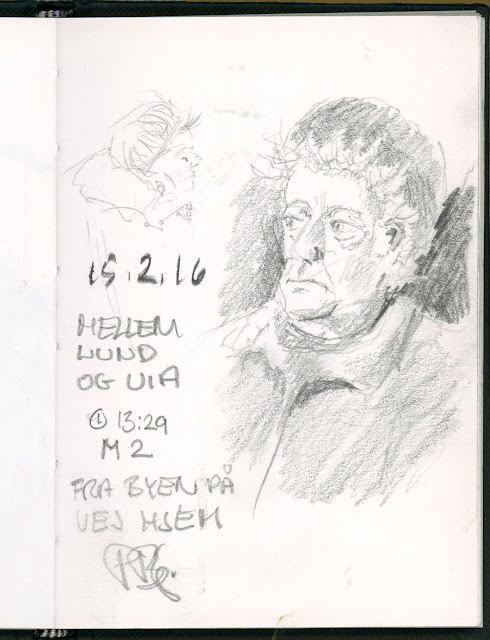 15.2.16
MELLEM
LUND
OG VIA
13:29
M2
FRA BYEN PÅ
VEJ HJEM